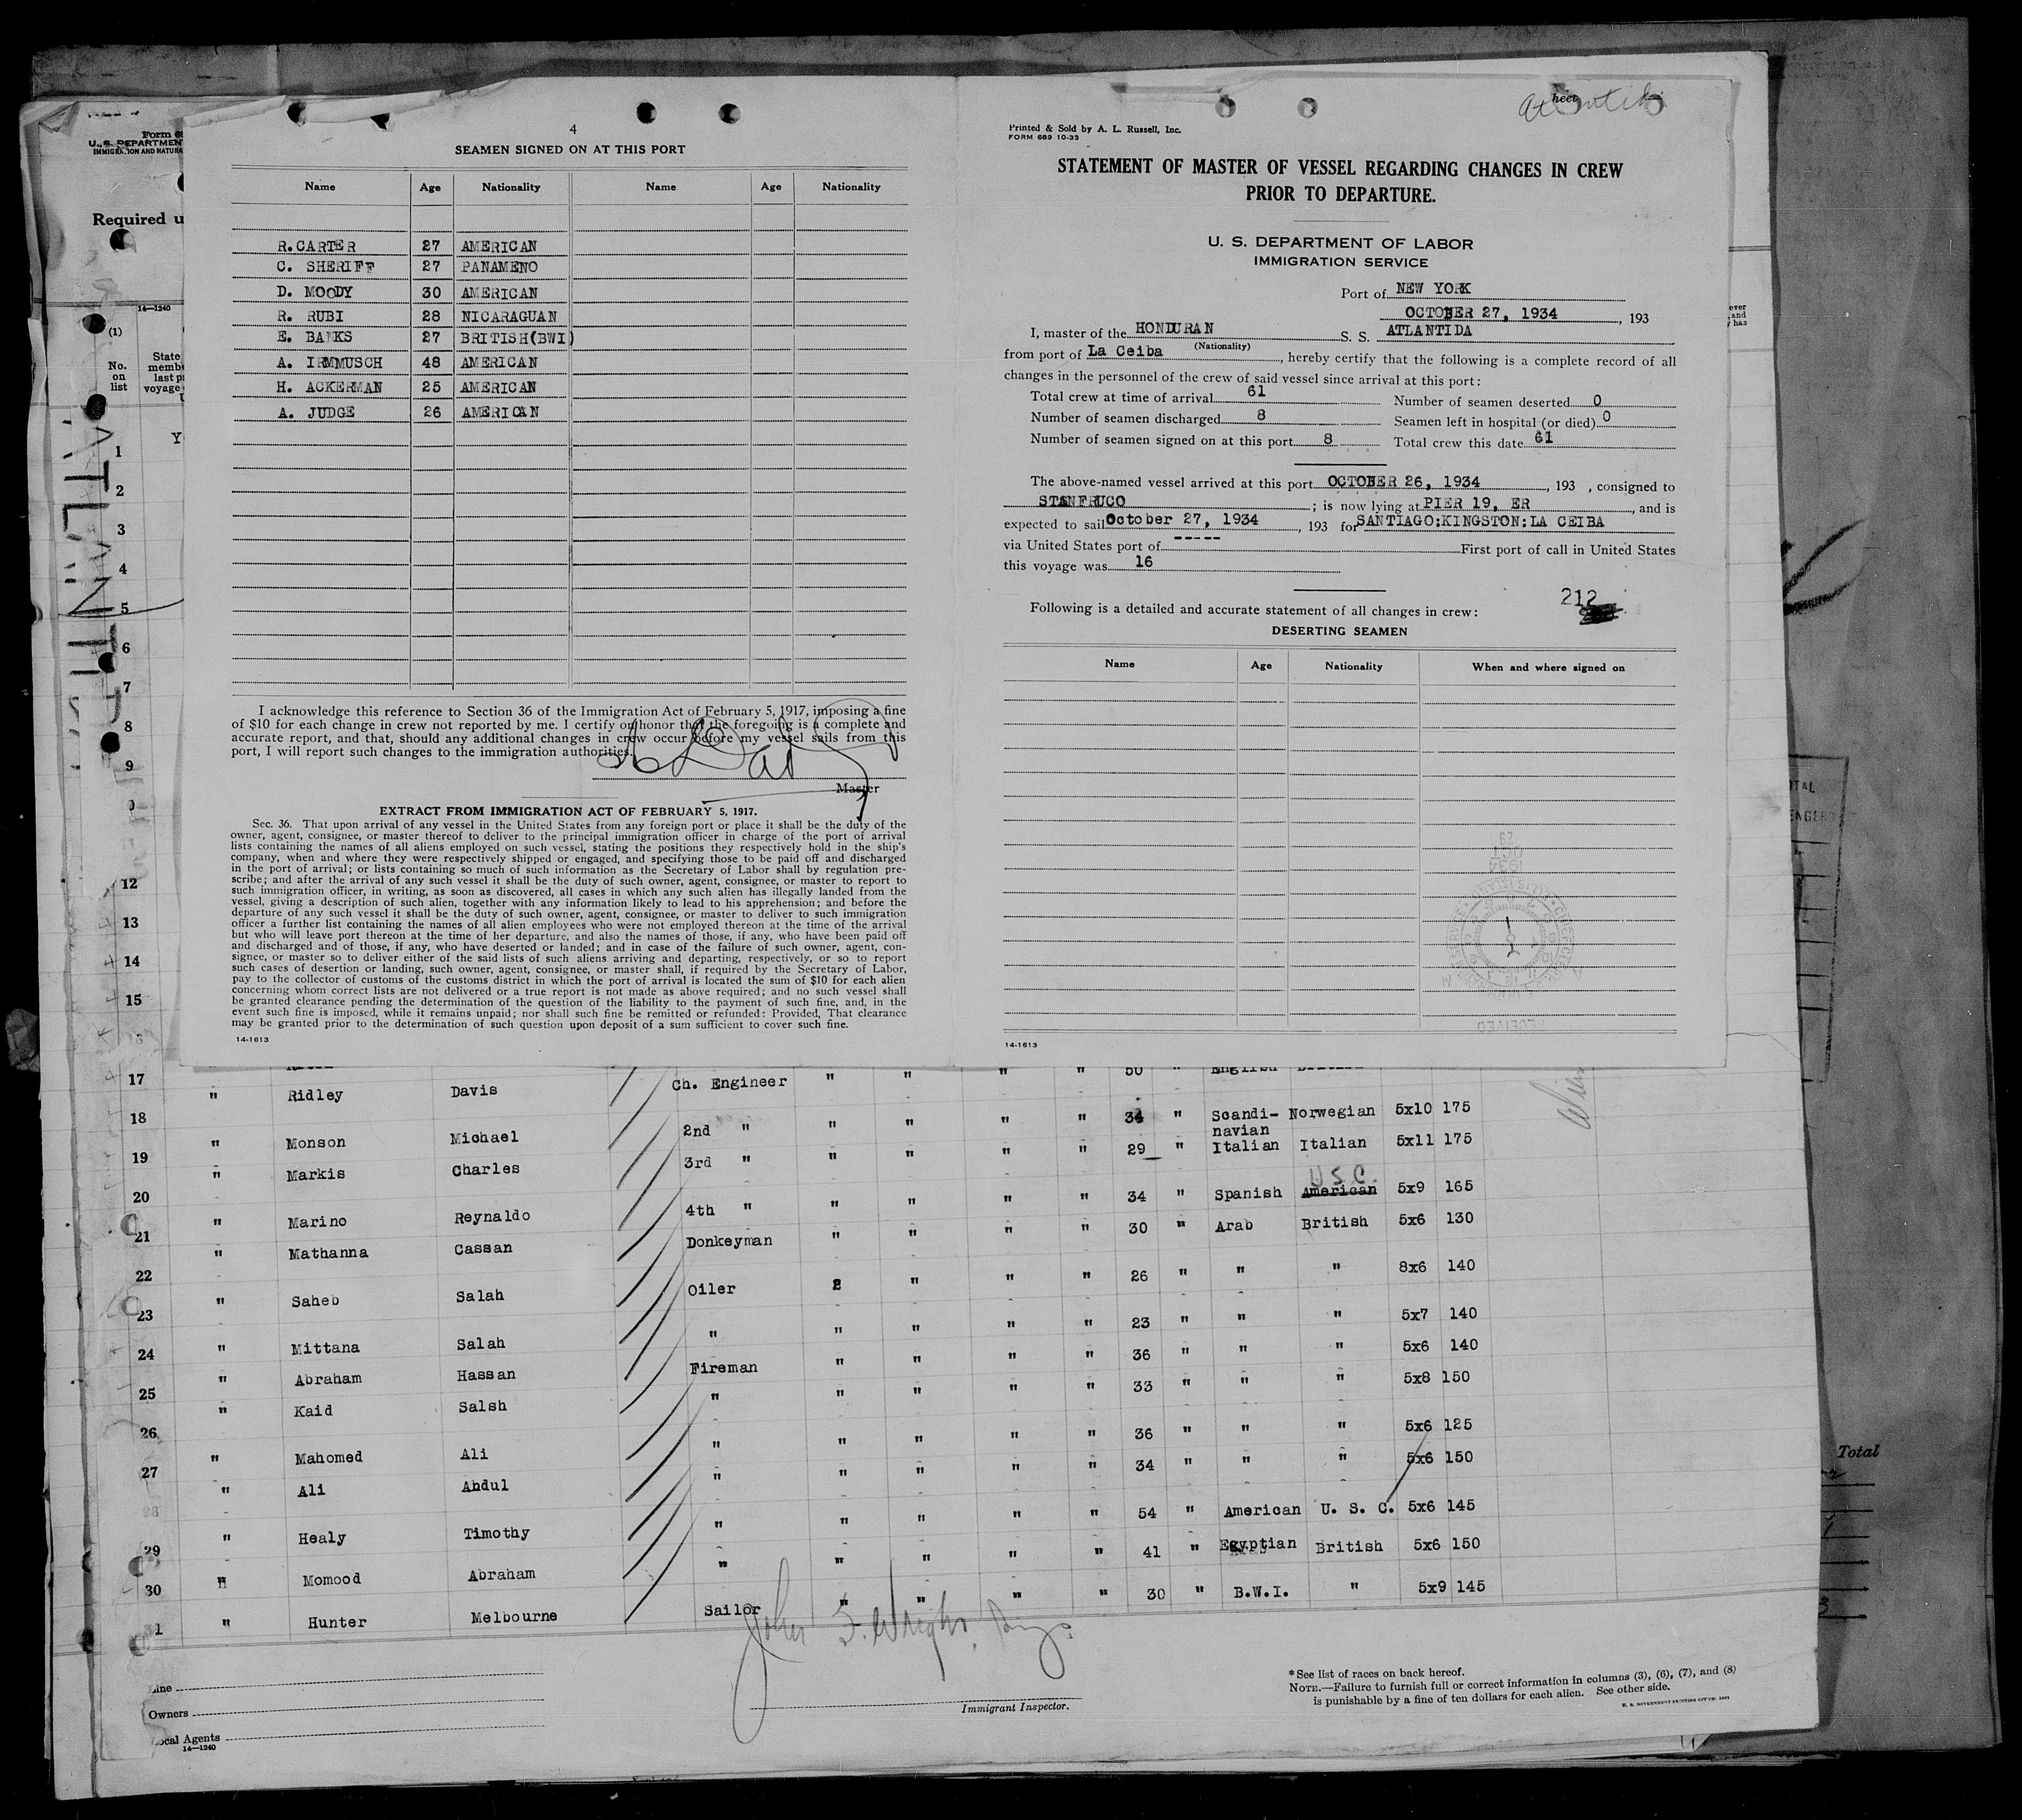 4
SEAMEN SIGNED ON AT THIS PORT
Name Age Nationality Name Age Nationality
R.CARTER 27 AMERICAN
C. SHERIFF 27 PANAMENO
D. MOODY 30 AMERICAN
R. RUBI 28 NICARAGUAN
E. BANKS 27 BRITISH(BWI)
A. IRMMUSCH 48 AMERICAN
H. ACKERMAN 25 AMERICAN
A. JUDGE 26 AMERICAN
I acknowledge this reference to Section 36 of the Immigration Act of February 5, 1917, imposing a fine
of $10 for each change in crew not reported by me. I certify on honor that the foregoing is a complete and
accurate report, and that, should any additional changes in crew occur before my vessel sails from this
port, I will report such changes to the immigration authorities.
Master
EXTRACT FROM IMMIGRATION ACT OF FEBRUARY 5, 1917.
Sec. 36. That upon arrival of any vessel in the United States from any foreign port or place it shall be the duty of the
owner, agent, consignee, or master thereof to deliver to the principal immigration officer in charge of the port of arrival
lists containing the names of all aliens employed on such vessel, stating the positions they respectively hold in the ship's
company, when and where they were respectively shipped or engaged, and specifying those to be paid off and discharged
in the port of arrival; or lists containing so much of such information as the Secretary of Labor shall by regulation pre-
scribe; and after the arrival of any such vessel it shall be the duty of such owner, agent, consignee, or master to report to
such immigration officer, in writing, as soon as discovered, all cases in which any such alien has illegally landed from the
vessel, giving a description of such alien, together with any information likely to lead to his apprehension; and before the
departure of any such vessel it shall be the duty of such owner, agent, consignee, or master to deliver to such immigration
officer a further list containing the names of all alien employees who were not employed thereon at the time of the arrival
but who will leave port thereon at the time of her departure, and also the names of those, if any, who have been paid off
and discharged and of those, if any, who have deserted or landed; and in case of the failure of such owner, agent, con-
signee, or master so to deliver either of the said lists of such aliens arriving and departing, respectively, or so to report
such cases of desertion or landing, such owner, agent, consignee, or master shall, if required by the Secretary of Labor,
pay to the collector of customs of the customs district in which the port of arrival is located the sum of $10 for each alien
concerning whom correct lists are not delivered or a true report is not made as above required; and no such vessel shall
be granted clearance pending the determination of the question of the liability to the payment of such fine, and, in the
event such fine is imposed, while it remains unpaid; nor shall such fine be remitted or refunded: Provided, That clearance
may be granted prior to the determination of such question upon deposit of a sum sufficient to cover such fine.
14-1613
Printed & Sold by A. L. Russell, Inc.
FORM 689 10-33
STATEMENT OF MASTER OF VESSEL REGARDING CHANGES IN CREW
PRIOR TO DEPARTURE.
U. S. DEPARTMENT OF LABOR
IMMIGRATION SERVICE
Port of NEW YORK
OCTOBER 27, 1934, 193
I, master of the HONDURAN S. S. ATLANTIDA
(Nationality)
from port of La Ceiba, hereby certify that the following is a complete record of all
changes in the personnel of the crew of said vessel since arrival at this port:
Total crew at time of arrival 61 Number of seamen deserted 0
Number of seamen discharged 8 Seamen left in hospital (or died) 0
Number of seamen signed on at this port 8 Total crew this date 61
The above-named vessel arrived at this port OCTOBER 26, 1934, 193 , consigned to
STANFRUCO; is now lying at PIER 19, ER, and is
expected to sail October 27, 1934, 193 for SANTIAGO:KINGSTON:LA CEIBA
via United States port of ----- First port of call in United States
this voyage was 16
212
Following is a detailed and accurate statement of all changes in crew:
DESERTING SEAMEN
Name Age Nationality When and where signed on
14-1613
Form 6
U. S. DEPARTMENT
IMMIGRATION AND NATURA
Required u
14-1240
(1)
No. on list
State
memb
last p
voyage
ATLANTI
1
2
3
4
5
6
7
8
9
12
13
14
15
17 " Ridley Davis Ch. Engineer " " " " 50 " English
18 " Monson Michael 2nd " " " " " 34 " Scandi-navian Norwegian 5x10 175
19 " Markis Charles 3rd " " " " " 29 " Italian Italian 5x11 175
U.S.C.
20 " Marino Reynaldo 4th " " " " " 34 " Spanish American 5x9 165
21 " Mathanna Cassan Donkeyman " " " " 30 " Arab British 5x6 130
22 " Saheb Salah Oiler 2 " " " 26 " " " 8x6 140
23 " Mittana Salah " " " " " 23 " " " 5x7 140
24 " Abraham Hassan Fireman " " " " 36 " " " 5x6 140
25 " Kaid Salsh " " " " " 33 " " " 5x8 150
26 " Mahomed Ali " " " " " 36 " " " 5x6 125
27 " Ali Abdul " " " " " 34 " " " 5x6 150
28 " Healy Timothy " " " " " 54 " American U. S. C. 5x6 145
29 " Momood Abraham " " " " " 41 " Egyptian British 5x6 150
30 " Hunter Melbourne Sailor " " " " 30 " B.W.I. " 5x9 145
John S. Wright
Line
Owners
Local Agents
14-1240
Immigrant Inspector.
* See list of races on back hereof.
NOTE.—Failure to furnish full or correct information in columns (3), (6), (7), and (8)
is punishable by a fine of ten dollars for each alien. See other side.
U. S. GOVERNMENT PRINTING OFFICE: 1933
Total